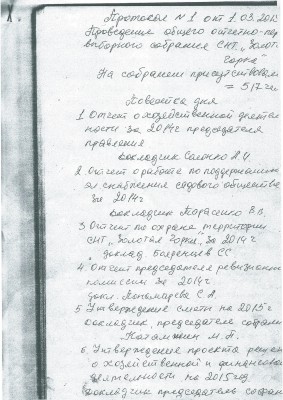 Протокол №1 от 1.03.201
Проведение общего отчетно-пер
выборного собрания СНТ „Золот
Горка"
На собрании присутствовал
= 517 че
Повестка дня
1. Отчет о хозяйственной деятел
ности за 2014г председателя
правления
докладчик
2. Отчет о работе по поддержанию
эл снабжения садового обществ
за 2014г
докладчик Тарасенко В.В.
3. Отчет по охране территории
СНТ „Золотая Горка" за 2014г
доклад СС
4. Отчет председателя ревизионн
комиссии за 2014г
докл. Пономарева С.А.
5. Утверждение сметы на 2015г
докладчик, председатель собран
М.П.
6. Утверждение проекта реше
о хозяйственной и финансово
деятельности на 2015год
докладчик председатель собран